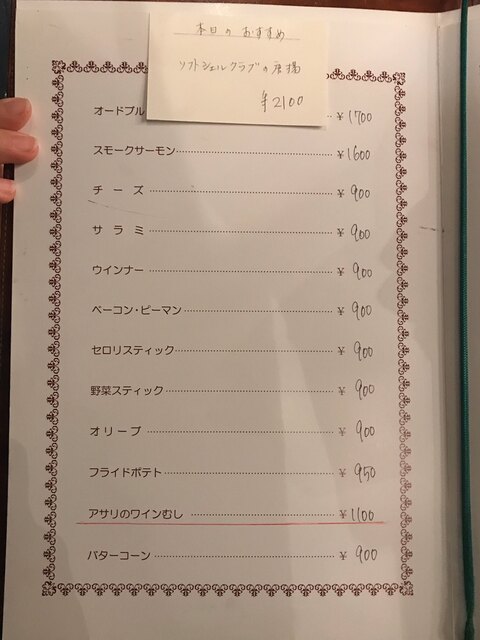 本日のおすすめ
ソフトシェルクラブの唐揚
¥2100
オードブル ¥1700
スモークサーモン ¥1600
チーズ ¥900
サラミ ¥900
ウインナー ¥900
ベーコン・ピーマン ¥900
セロリスティック ¥900
野菜スティック ¥900
オリーブ ¥900
フライドポテト ¥950
アサリのワインむし ¥1100
バターコーン ¥900